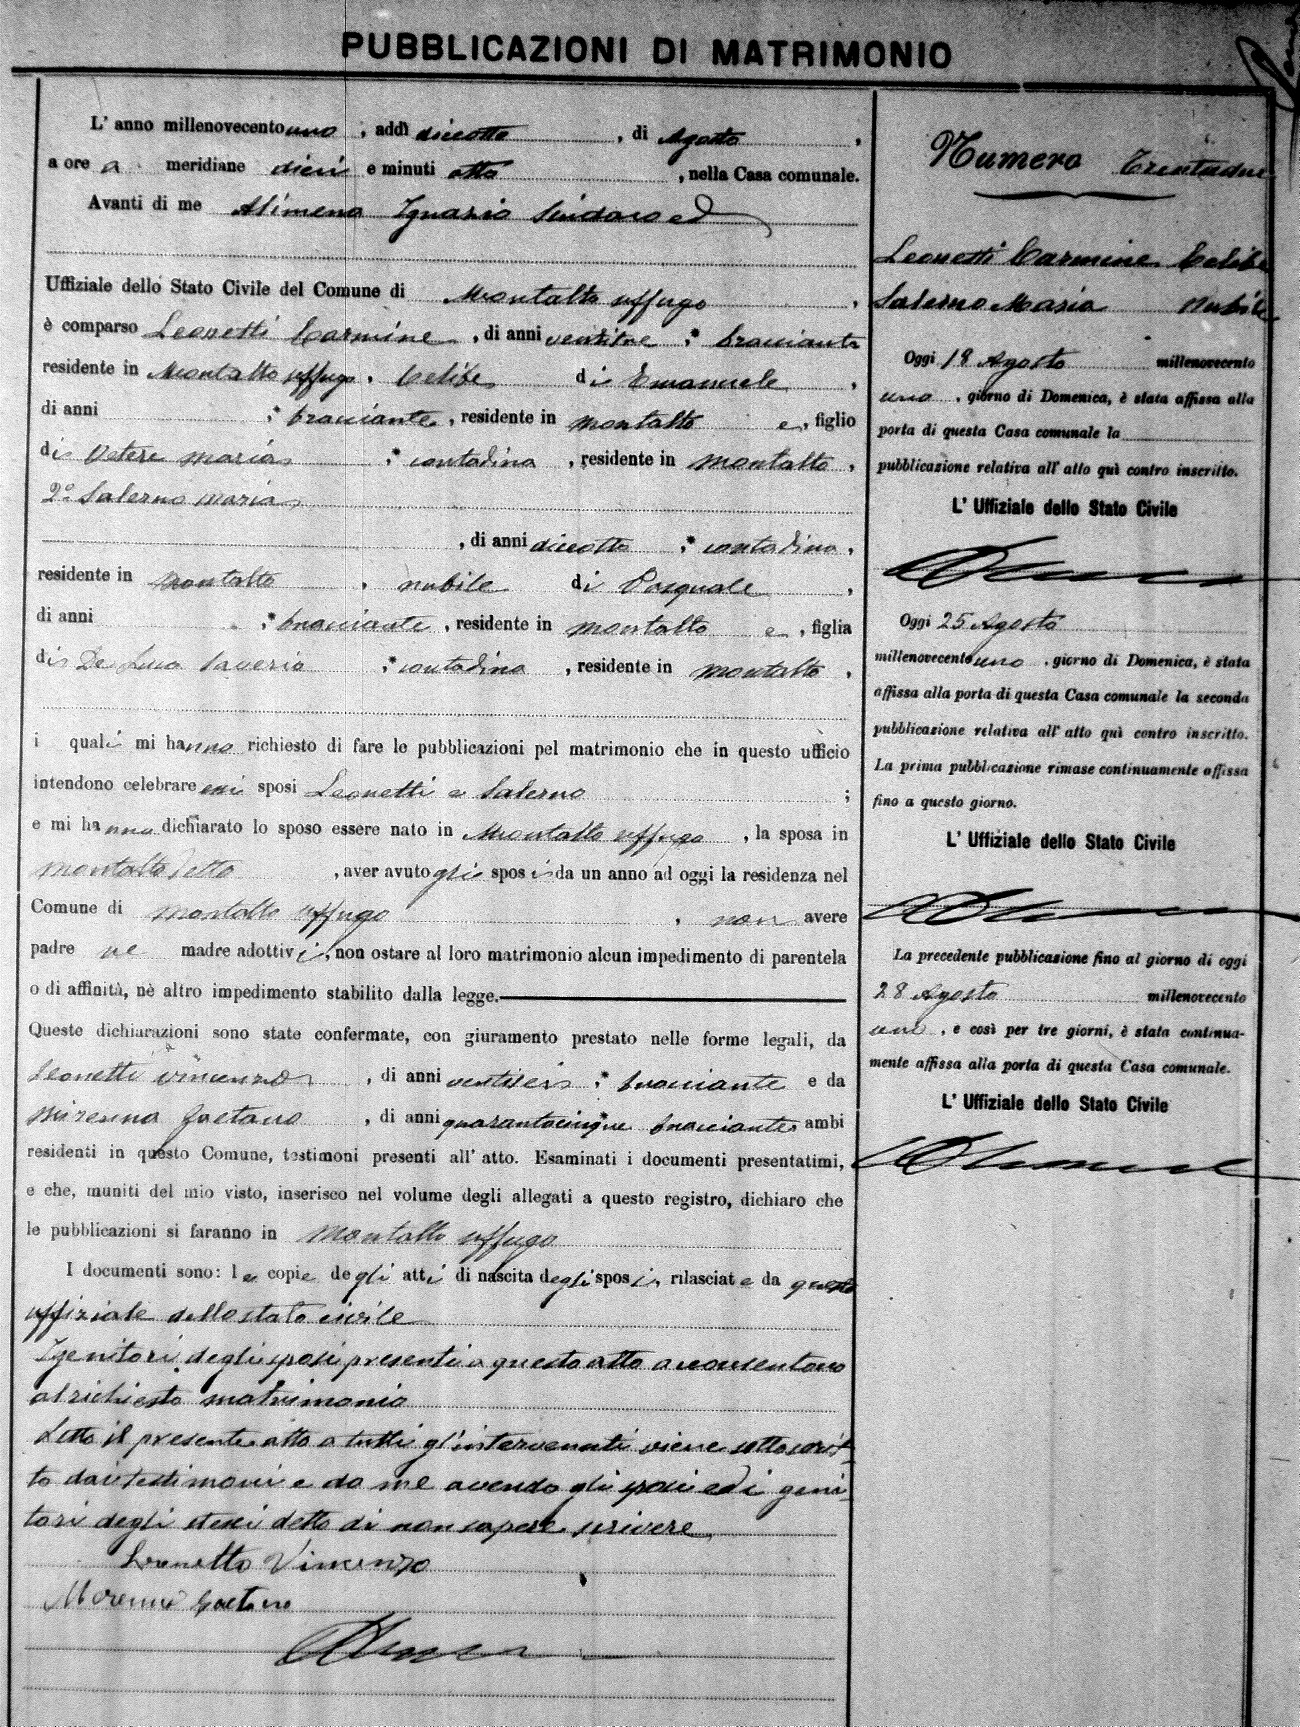 PUBBLICAZIONI DI MATRIMONIO
L' anno millenovecento uno, addì diciotto, di Agosto,
a ore a meridiane dieci e minuti otto, nella Casa comunale.
Avanti di me Alimena Ignazio Sindaco ed
Uffiziale dello Stato Civile del Comune di Montalto Uffugo,
è comparso Leonetti Carmine, di anni ventitre, * bracciante
residente in Montalto Uffugo, celibe di Emanuele,
di anni , * bracciante, residente in Montalto e, figlio
di Vetere Maria, * contadina, residente in Montalto,
2° Salerno Maria
, di anni diciotto, * contadina,
residente in Montalto, nubile di Pasquale,
di anni , * bracciante, residente in Montalto e, figlia
di De Luca Saveria, * contadina, residente in Montalto,
i quali mi hanno richiesto di fare le pubblicazioni pel matrimonio che in questo ufficio
intendono celebrare essi sposi Leonetti e Salerno ;
e mi hanno dichiarato lo sposo essere nato in Montalto Uffugo, la sposa in
Montalto detto, aver avuto gli sposi da un anno ad oggi la residenza nel
Comune di Montalto Uffugo, non avere
padre ne madre adottivi, non ostare al loro matrimonio alcun impedimento di parentela
o di affinità, nè altro impedimento stabilito dalla legge.
Queste dichiarazioni sono state confermate, con giuramento prestato nelle forme legali, da
Leonetti Vincenzo, di anni ventisei, * bracciante e da
Gaetano, di anni quarantacinque * bracciante ambi
residenti in questo Comune, testimoni presenti all' atto. Esaminati i documenti presentatimi,
e che, muniti del mio visto, inserisco nel volume degli allegati a questo registro, dichiaro che
le pubblicazioni si faranno in Montalto Uffugo
I documenti sono: le copie degli atti di nascita degli sposi, rilasciate da questo
uffiziale dello stato civile
I genitori degli sposi presenti a questo atto acconsentono
al richiesto matrimonio
Letto il presente atto a tutti gl'intervenuti viene sottoscrit
to dai testimoni e da me avendo gli sposi ed i geni
tori degli stessi detto di non sapere scrivere
Leonetto Vincenzo
Gaetano
Numero Trentadue
Leonetti Carmine Celibe
Salerno Maria Nubile
Oggi 18 Agosto millenovecento
uno, giorno di Domenica, è stata affissa alla
porta di questa Casa comunale la
pubblicazione relativa all' atto quì contro inscritto.
L' Uffiziale dello Stato Civile
Oggi 25 Agosto
millenovecento uno, giorno di Domenica, è stata
affissa alla porta di questa Casa comunale la seconda
pubblicazione relativa all' atto quì contro inscritto.
La prima pubblicazione rimase continuamente affissa
fino a questo giorno.
L' Uffiziale dello Stato Civile
La precedente pubblicazione fino al giorno di oggi
28 Agosto millenovecento
uno, e così per tre giorni, è stata continua-
mente affissa alla porta di questa Casa comunale.
L' Uffiziale dello Stato Civile